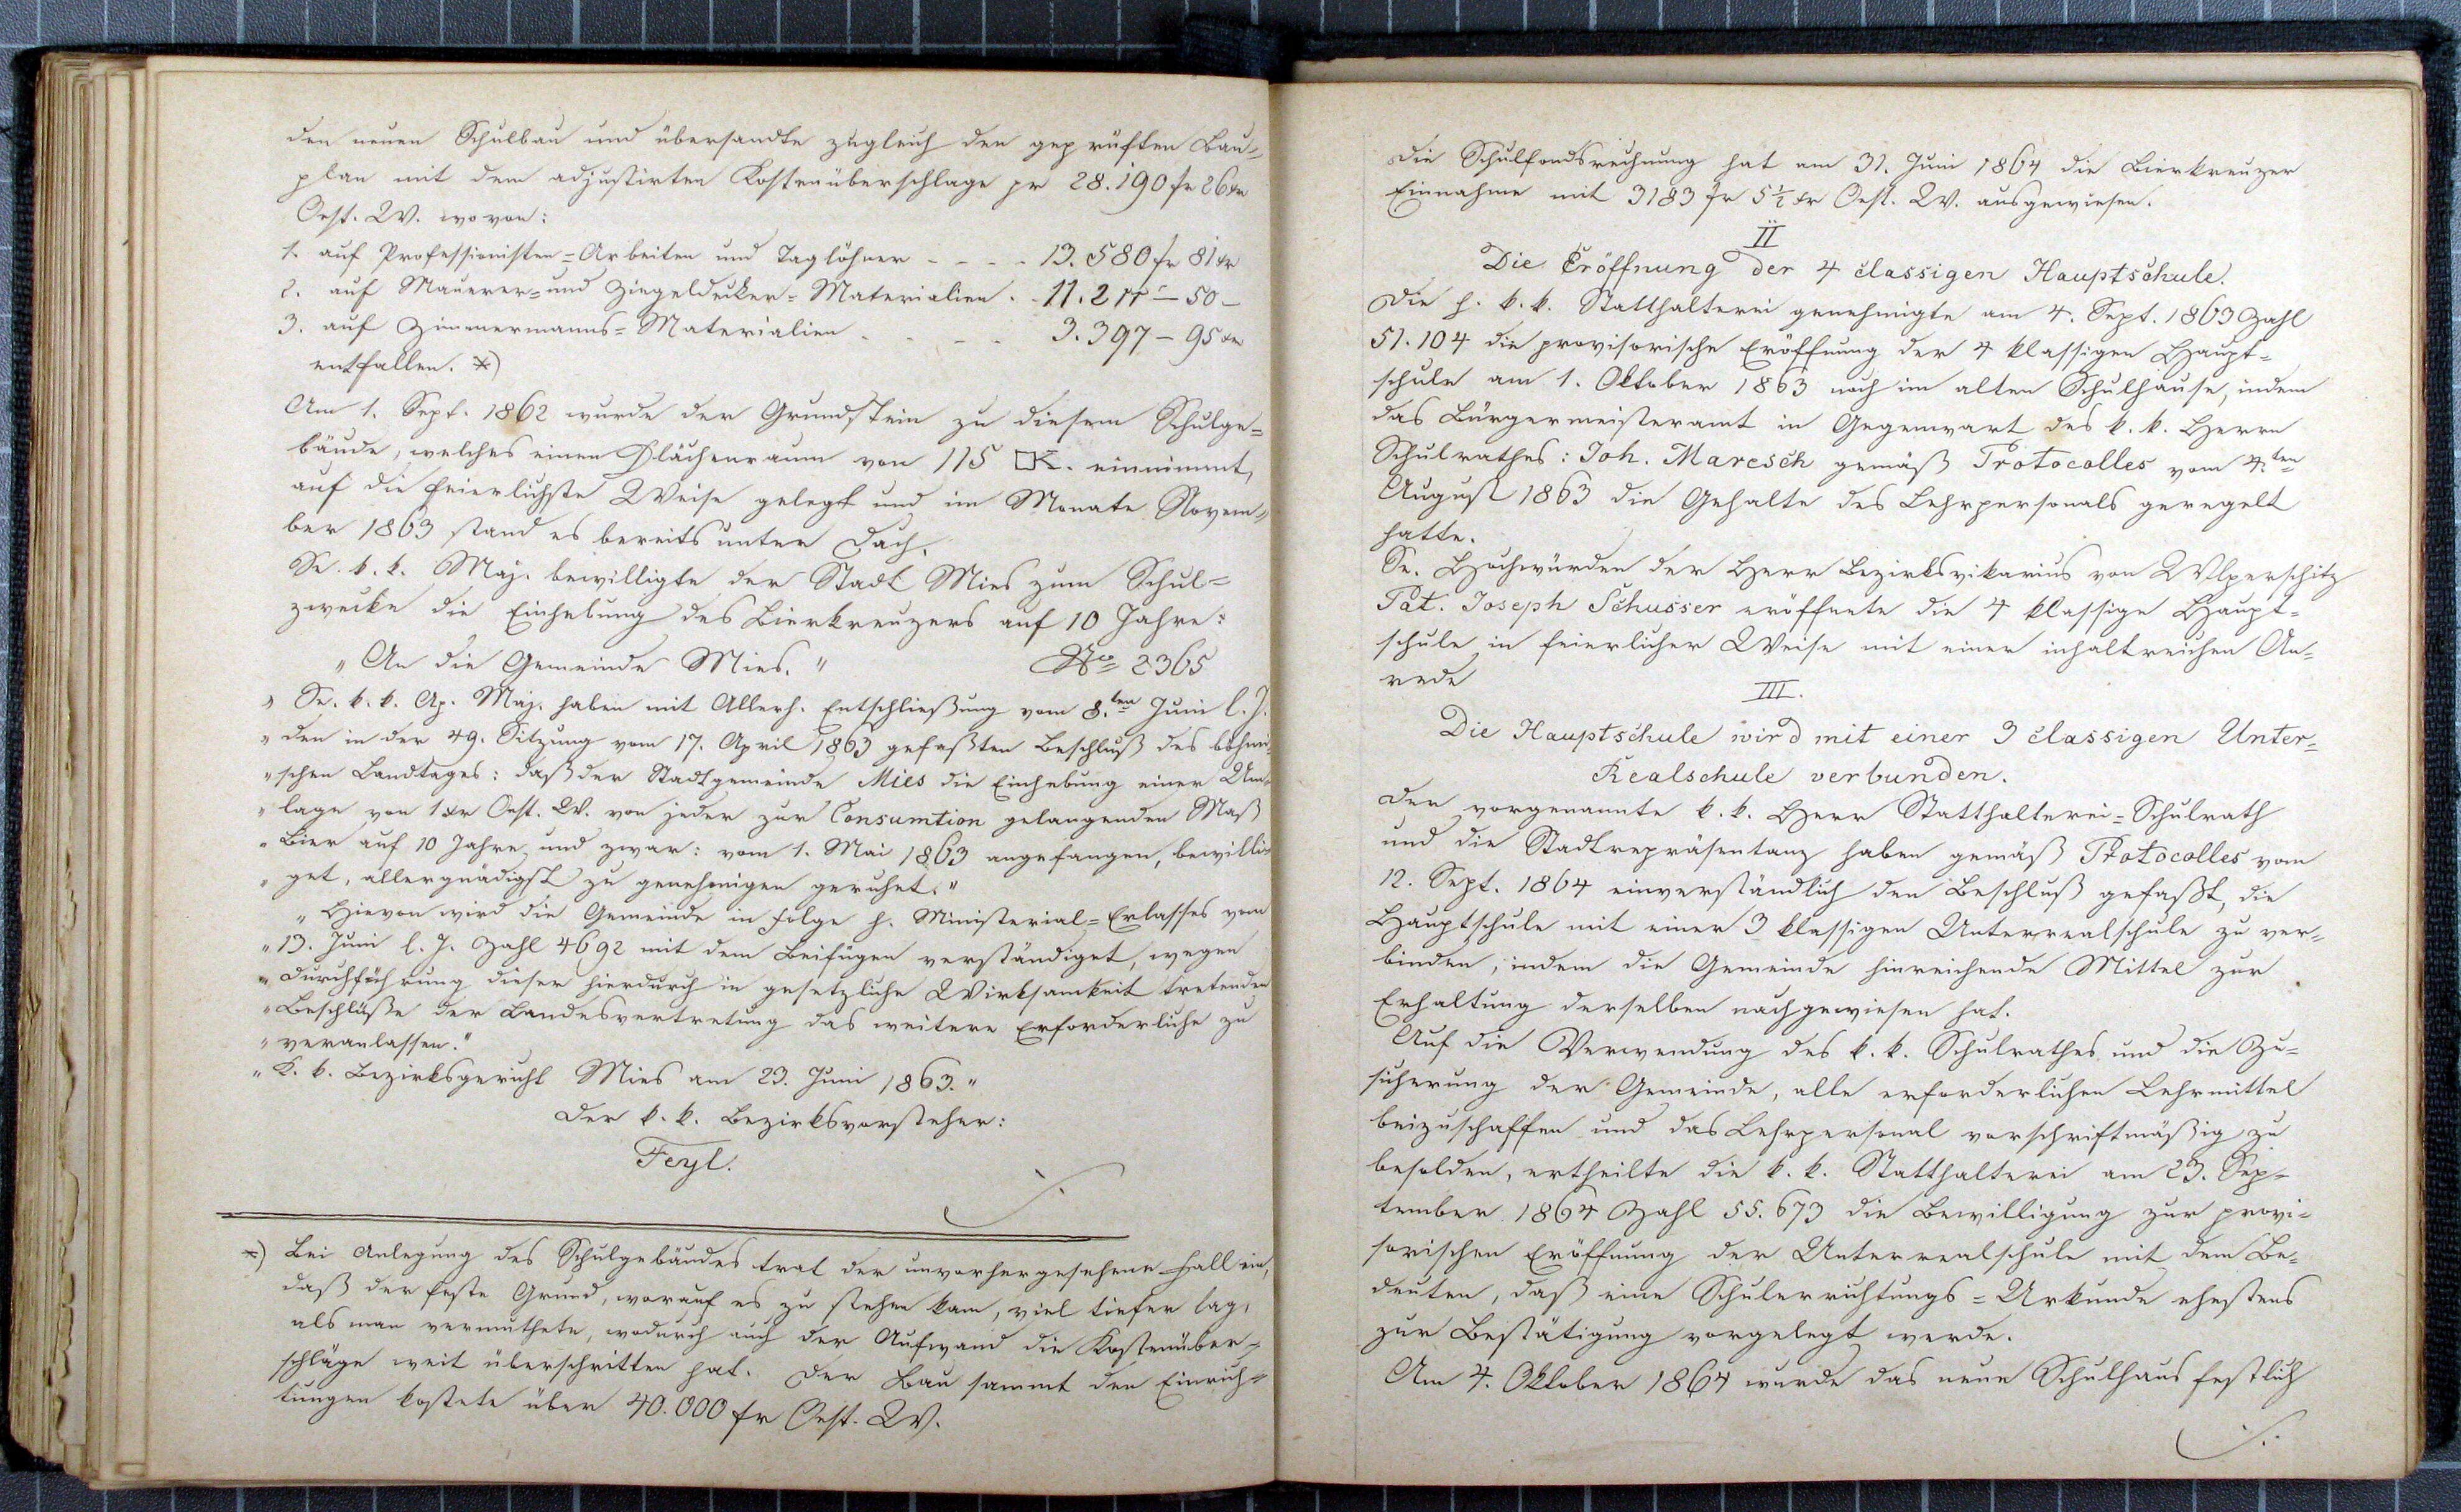 den neuen Schulbau und übersandte zugleich den geprüften Bau-
plan mit dem adjustirten Kostenüberschlage pr 28.190 fr 26 xr
Oest. W. wovon:
1. auf Professionisten-Arbeiten und Taglöhner - - - - 13.580 fr 81 xr
2. auf Maurer- und Ziegeldecker-Materialien . - 11.211 - 50 -
3. auf Zimmermanns-Materialien - - - - 3.397 - 95 xr
entfallen. *)
Am 1. Sept. 1862 wurde der Grundstein zu diesem Schulge-
bäude, welches einen Flächenraum von 115 □K. einnimmt,
auf die feierlichste Weise gelegt und im Monate Novem-
ber 1863 stand es bereits unter Dach.
Se. k. k. Maj. bewilligte der Stadt Mies zum Schul-
zwecke die Einhebung des Bierkreuzers auf 10 Jahre:
„An die Gemeinde Mies." No 2365
„Se. k. k. Ap. Maj. haben mit Allerh. Entschließung vom 8.ten Juni l. J.
„den in der 49. Sitzung vom 17. April 1863 gefaßten Beschluß des böhmi-
„schen Landtages: daß der Stadtgemeinde Mies die Einhebung einer Um-
„lage von 1 xr Oest. W. von jeder zur Consumtion gelangenden Maß
„Bier auf 10 Jahre, und zwar: vom 1. Mai 1863 angefangen, bewilli-
„get, allergnädigst zu genehmigen geruhet."
„Hievon wird die Gemeinde in Folge h. Ministerial-Erlasses vom
„13. Juni l. J. Zahl 4692 mit dem Beifügen verständiget, wegen
„Durchführung dieser hierdurch in gesetzliche Wirksamkeit tretenden
„Beschlüße der Landesvertretung das weitere Erforderliche zu
„veranlassen."
„K. k. Bezirksgericht Mies am 23. Juni 1863."
Der k. k. Bezirksvorsteher:
Feyl.
*) Bei Anlegung des Schulgebäudes trat der unvorhergesehene Fall ein,
daß der feste Grund, worauf es zu stehen kam, viel tiefer lag,
als man vermuthete, wodurch auch der Aufwand die Kostenüber-
schläge weit überschritten hat. Der Bau sammt den Einrich-
tungen kostete über 40.000 fr Oest. W.
Die Schulfondsrechnung hat am 31. Juni 1864 die Bierkreuzer
Einnahme mit 3183 fr 5½ xr Oest. W. ausgewiesen.
II
Die Eröffnung der 4 classigen Hauptschule.
Die h. k. k. Statthalterei genehmigte am 4. Sept. 1863 Zahl
51.104 die provisorische Eröffnung der 4 klassigen Haupt-
schule am 1. Oktober 1863 noch im alten Schulhause, indem
das Bürgermeisteramt in Gegenwart des k. k. Herrn
Schulrathes: Joh. Maresch gemäß Protocolles vom 4.ten
August 1863 die Gehalte des Lehrpersonals geregelt
hatte.
Se. Hochwürden der Herr Bezirksvikarius von Wlperschitz
Pat. Joseph Schusser eröffnete die 4 klassige Haupt-
schule in feierlicher Weise mit einer inhaltreichen An-
rede
III.
Die Hauptschule wird mit einer 3 classigen Unter-
Realschule verbunden.
Der vorgenannte k. k. Herr Statthalterei-Schulrath
und die Stadtrepräsentanz haben gemäß Protocolles vom
12. Sept. 1864 einverständlich den Beschluß gefaßt, die
Hauptschule mit einer 3 klassigen Unterrealschule zu ver-
binden, indem die Gemeinde hinreichende Mittel zur
Erhaltung derselben nachgewiesen hat.
Auf die Verwendung des k. k. Schulrathes und die Zu-
sicherung der Gemeinde, alle erforderlichen Lehrmittel
beizuschaffen und das Lehrpersonal vorschriftmäßig zu
besolden, ertheilte die k. k. Statthalterei am 23. Sep-
tember 1864 Zahl 55.673 die Bewilligung zur provi-
sorischen Eröffnung der Unterrealschule mit dem Be-
deuten, daß eine Schulerrichtungs-Urkunde ehestens
zur Bestätigung vorgelegt werde.
Am 4. Oktober 1864 wurde das neue Schulhaus festlich